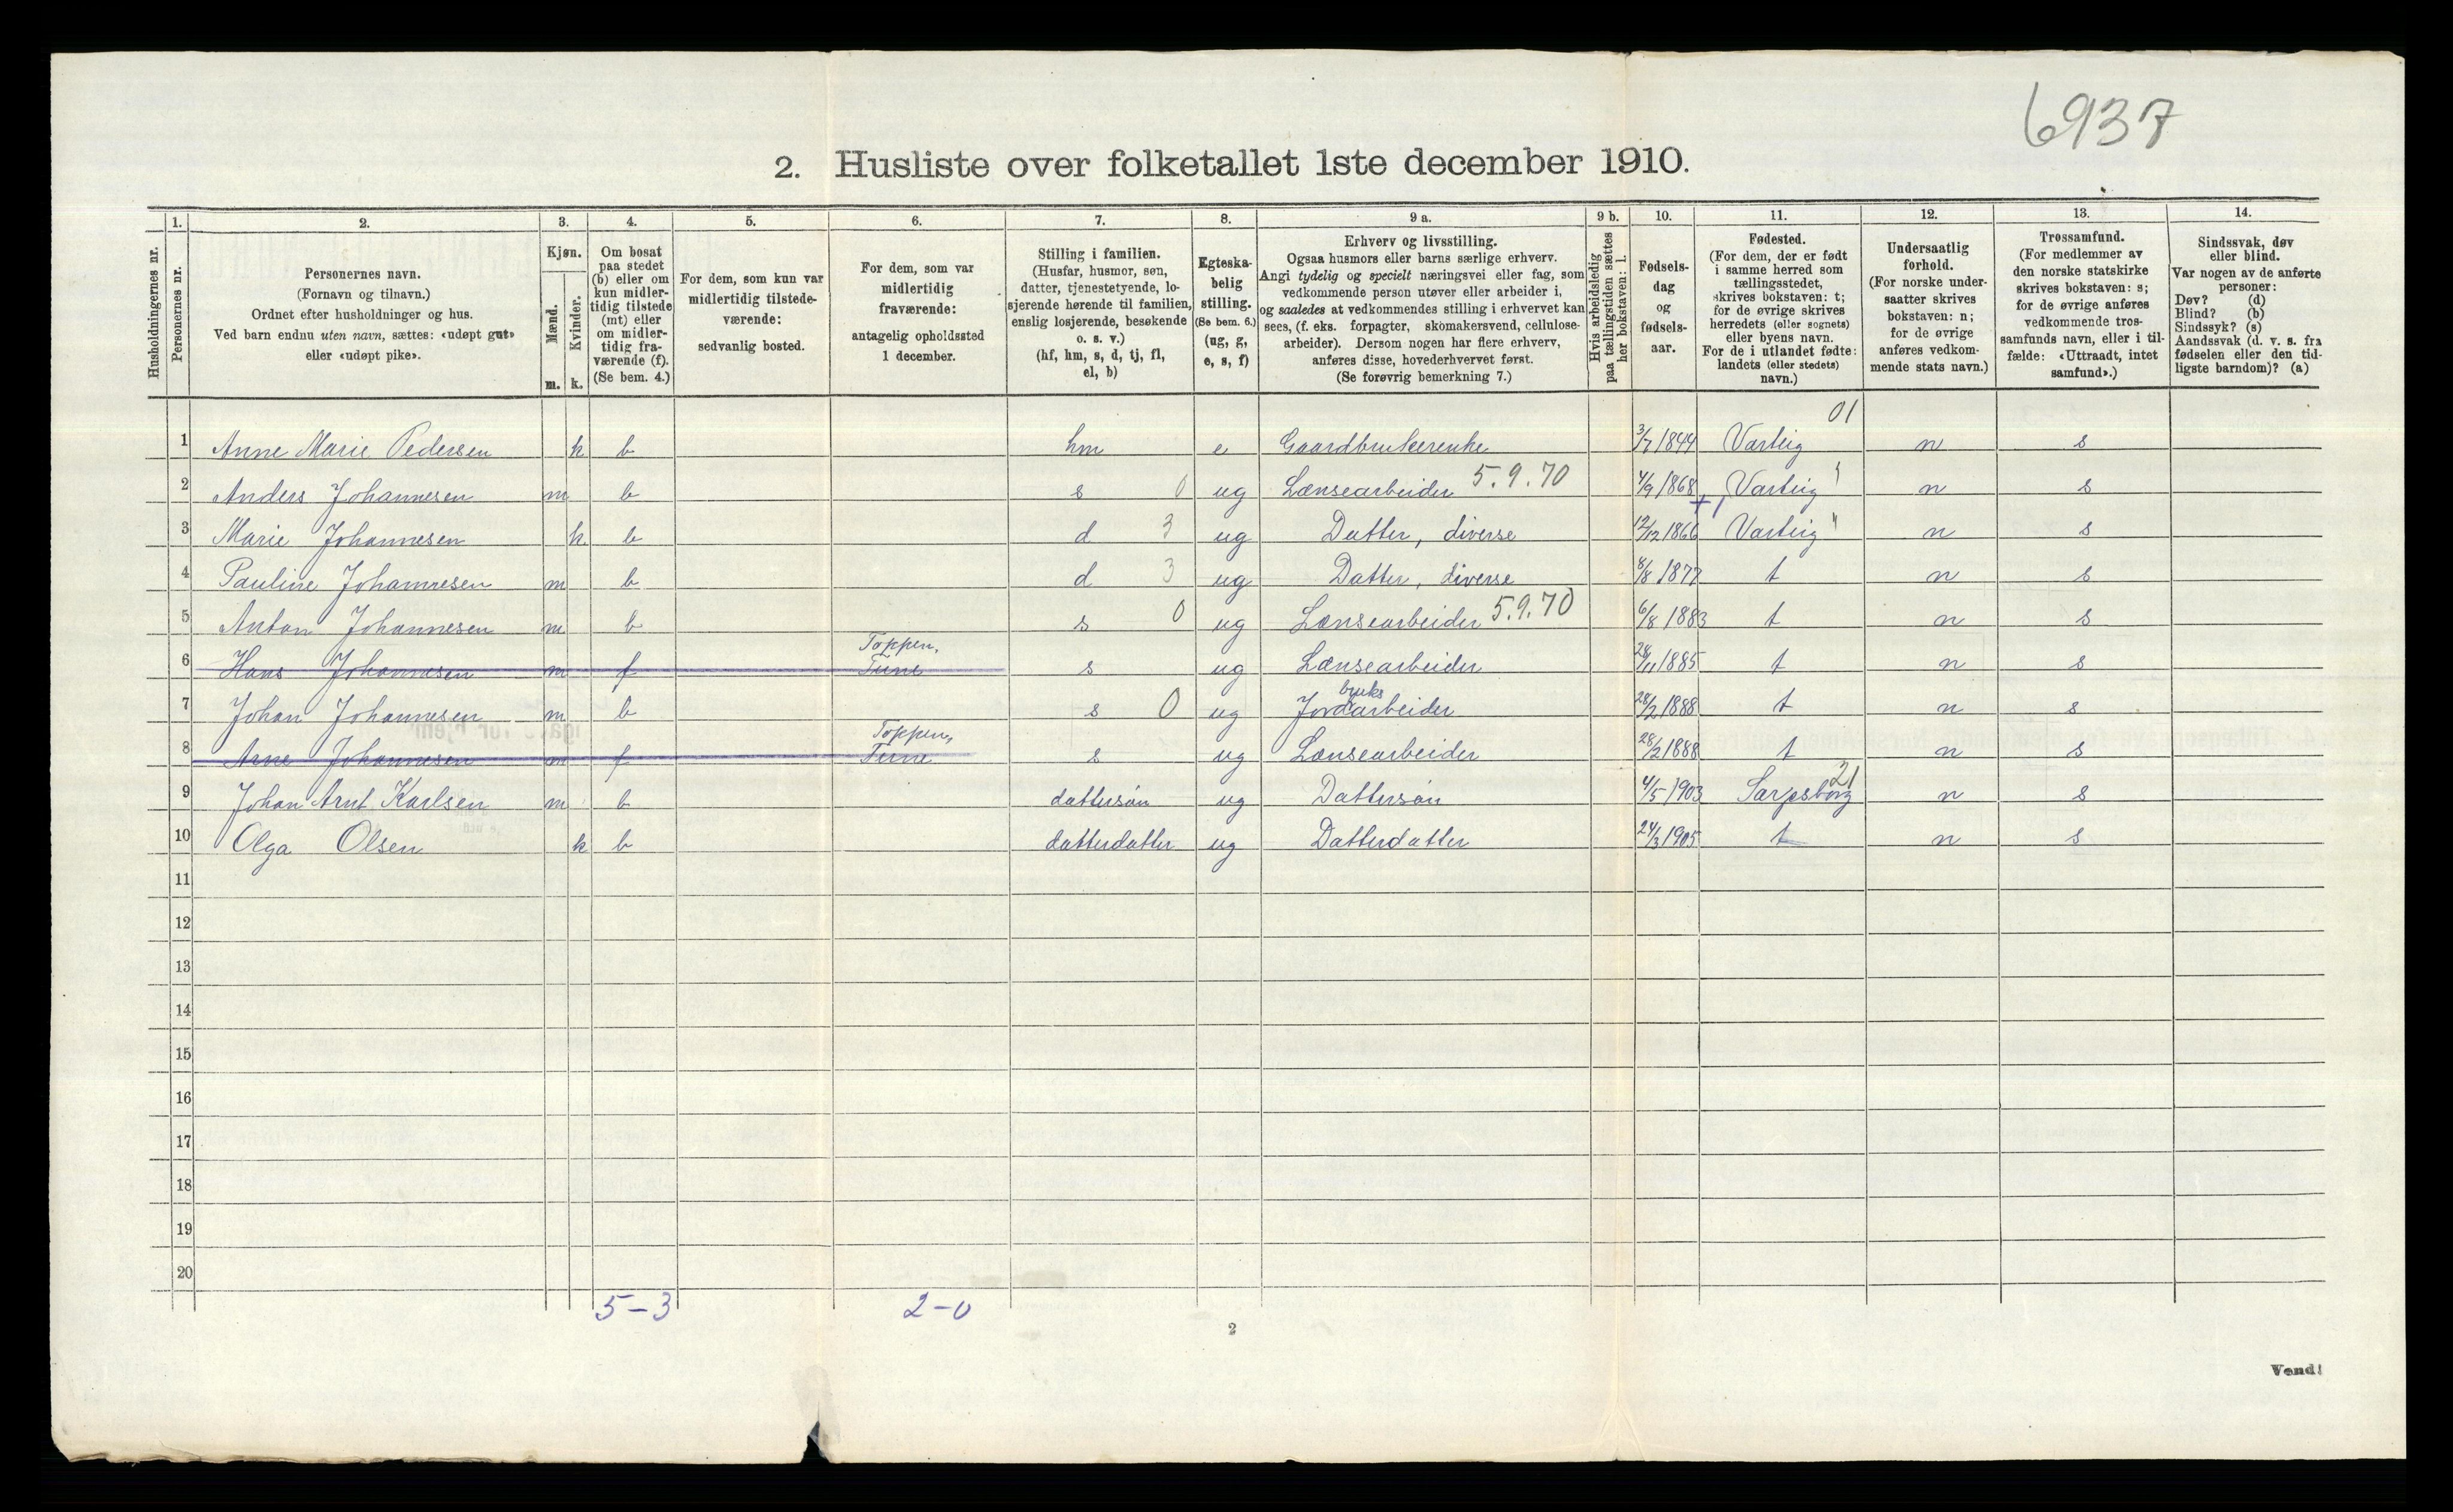 6937
2. Husliste over folketallet 1ste december 1910.
1. 2. 3. 4. 5. 6. 7. 8. 9 a. 9 b. 10. 11. 12. 13. 14.
Husholdningernes nr.
Personernes nr.
Personernes navn.
(Fornavn og tilnavn.)
Ordnet efter husholdninger og hus.
Ved barn endnu uten navn, sættes: «udøpt gut»
eller «udøpt pike».
Kjøn.
Mænd.
Kvinder.
m. k.
Om bosat
paa stedet
(b) eller om
kun midler-
tidig tilstede
(mt) eller
om midler-
tidig fra-
værende (f).
(Se bem. 4.)
For dem, som kun var
midlertidig tilstede-
værende:
sedvanlig bosted.
For dem, som var
midlertidig
fraværende:
antagelig opholdssted
1 december.
Stilling i familien.
(Husfar, husmor, søn,
datter, tjenestetyende, lo-
sjerende hørende til familien,
enslig losjerende, besøkende
o. s. v.)
(hf, hm, s, d, tj, fl,
el, b)
Egteska-
belig
stilling.
(Se bem. 6.)
(ug, g,
e, s, f)
Erhverv og livsstilling.
Ogsaa husmors eller barns særlige erhverv.
Angi tydelig og specielt næringsvei eller fag, som
vedkommende person utøver eller arbeider i,
og saaledes at vedkommendes stilling i erhvervet kan
sees, (f. eks. forpagter, skomakersvend, cellulose-
arbeider). Dersom nogen har flere erhverv,
anføres disse, hovederhvervet først.
(Se forøvrig bemerkning 7.)
Hvis arbeidsledig
paa tællingstiden sættes
her bokstaven: l.
Fødsels-
dag
og
fødsels-
aar.
Fødested.
(For dem, der er født
i samme herred som
tællingsstedet,
skrives bokstaven: t;
for de øvrige skrives
herredets (eller sognets)
eller byens navn.
For de i utlandet fødte:
landets (eller stedets)
navn.)
Undersaatlig
forhold.
(For norske under-
saatter skrives
bokstaven: n;
for de øvrige
anføres vedkom-
mende stats navn.)
Trossamfund.
(For medlemmer av
den norske statskirke
skrives bokstaven: s;
for de øvrige anføres
vedkommende tros-
samfunds navn, eller i til-
fælde: «Uttraadt, intet
samfund».)
Sindssvak, døv
eller blind.
Var nogen av de anførte
personer:
Døv? (d)
Blind? (b)
Sindssyk? (s)
Aandssvak (d. v. s. fra
fødselen eller den tid-
ligste barndom)? (a)
01
1 Anne Marie Pedersen k b hm e Gaardbrukerenke 3/7 1844 Varteig n s
2 Anders Johannesen m b s 0 ug Lænsearbeider 5.9.70 4/9 1868 Varteig " n s
3 Marie Johannesen k b d 3 ug Datter, diverse 12/12 1866 Varteig " n s
4 Pauline Johannesen m b d 3 ug Datter, diverse 8/8 1877 t n s
5 Anton Johannesen m b s 0 ug Lænsearbeider 5.9.70 6/8 1883 t n s
6 Hans Johannesen m f Toppen, Tune s ug Lænsearbeider 28/11 1885 t n s
7 Johan Johannesen m b s 0 ug Jordbruksarbeider 28/2 1888 t n s
8 Arne Johannesen m f Toppen, Tune s ug Lænsearbeider 28/2 1888 t n s
9 Johan Arnt Karlsen m b dattersøn ug Dattersøn 4/5 1903 Sarpsborg 21 n s
10 Olga Olsen k b datterdatter ug Datterdatter 24/3 1905 t n s
11
12
13
14
15
16
17
18
19
20
5 - 3 2 - 0
2
Vend!